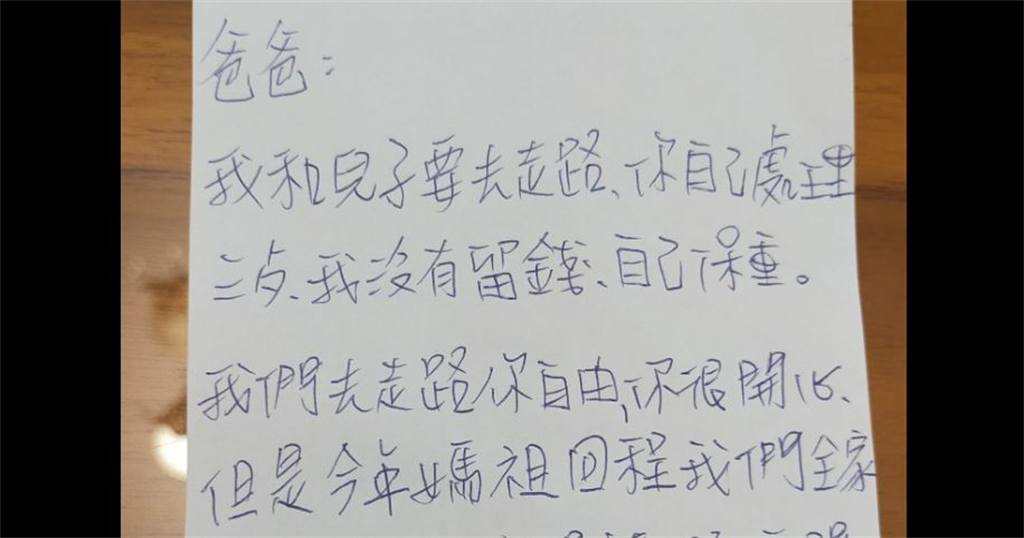 爸爸:
我和兒子要去走路、你自己處理
三点、我沒有留錢、自己保重。
我們去走路你自由,你很開心、
但是今年媽祖回程我們全家